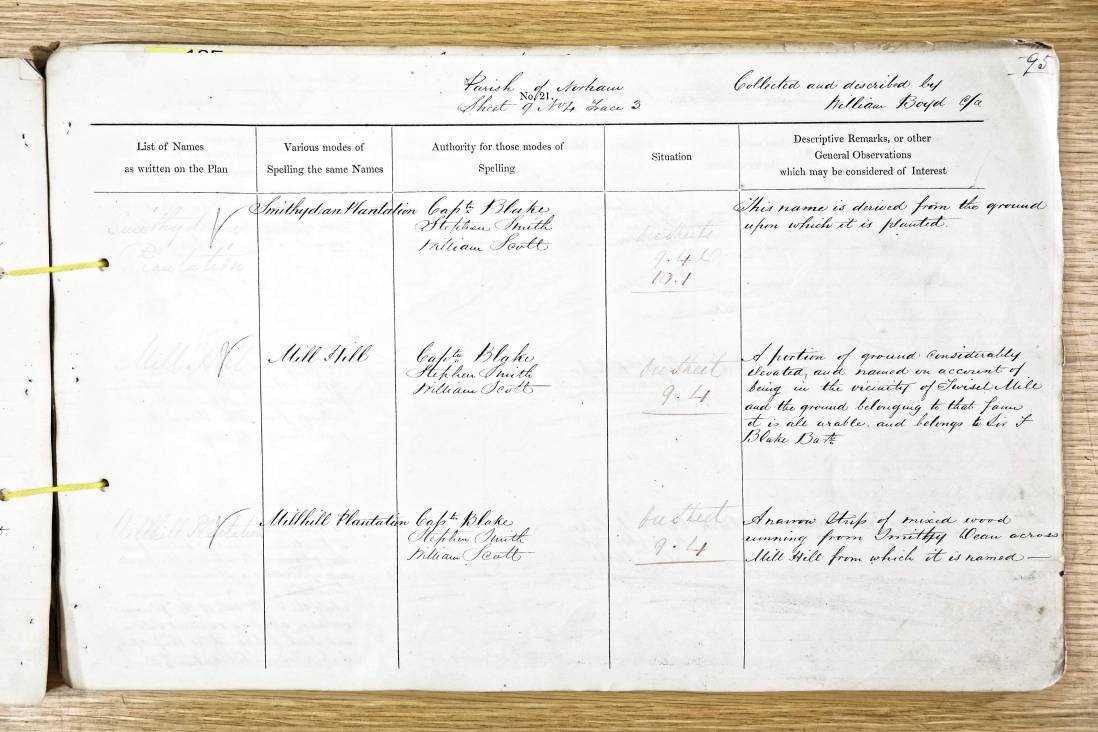 95
Parish of Norham
No. 21.
Sheet 9 No 4 Trace 3
Collected and described by
William Boyd c/a
List of Names
as written on the Plan
Various modes of
Spelling the same Names
Authority for those modes of
Spelling
Situation
Descriptive Remarks, or other
General Observations
which may be considered of Interest
Smithy dean
Plantation
Smithydean Plantation
Captn Blake
Stephen Smith
William Scott
See Sheets
9.4
10.1
This name is derived from the ground
upon which it is planted.
Mill Hill
Mill Hill
Captn Blake
Stephen Smith
William Scott
See Sheet
9.4
A portion of ground considerably
elevated, and named on account of
being in the vicinity of Twisel Mill
and the ground belonging to that farm
it is all arable. and belongs to Sir F
Blake Bart
Millhill Plantation
Millhill Plantation
Captn Blake
Stephen Smith
William Scott
See Sheet
9.4
A narrow strip of mixed wood
running from Smithy Dean across
Mill Hill from which it is named —